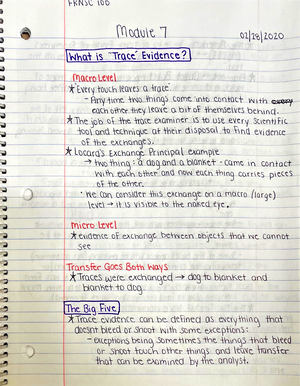 FRNSC 100
Module 7
02/28/2020
What is "Trace" Evidence?
Macro Level
★ Every touch leaves a trace.
- Any time two things come into contact with every
each other they leave a bit of themselves behind.
★ The job of the trace examiner is to use every scientific
tool and technique at their disposal to find evidence
of the exchanges.
★ Locard's Exchange Principal example
→ two thing : a dog and a blanket - came in contact
with each other and now each thing carries pieces
of the other.
· We can consider this exchange on a macro (large)
level → it is visible to the naked eye.
micro Level
★ evidence of exchange between objects that we cannot
see
Transfer Goes Both Ways
★ Traces were exchanged → dog to blanket and
blanket to dog.
The Big Five
★ Trace evidence can be defined as everything that
doesn't bleed or shoot with some exceptions:
- exceptions being sometimes the things that bleed
or shoot touch other things and leave transfer
that can be examined by the analyst.